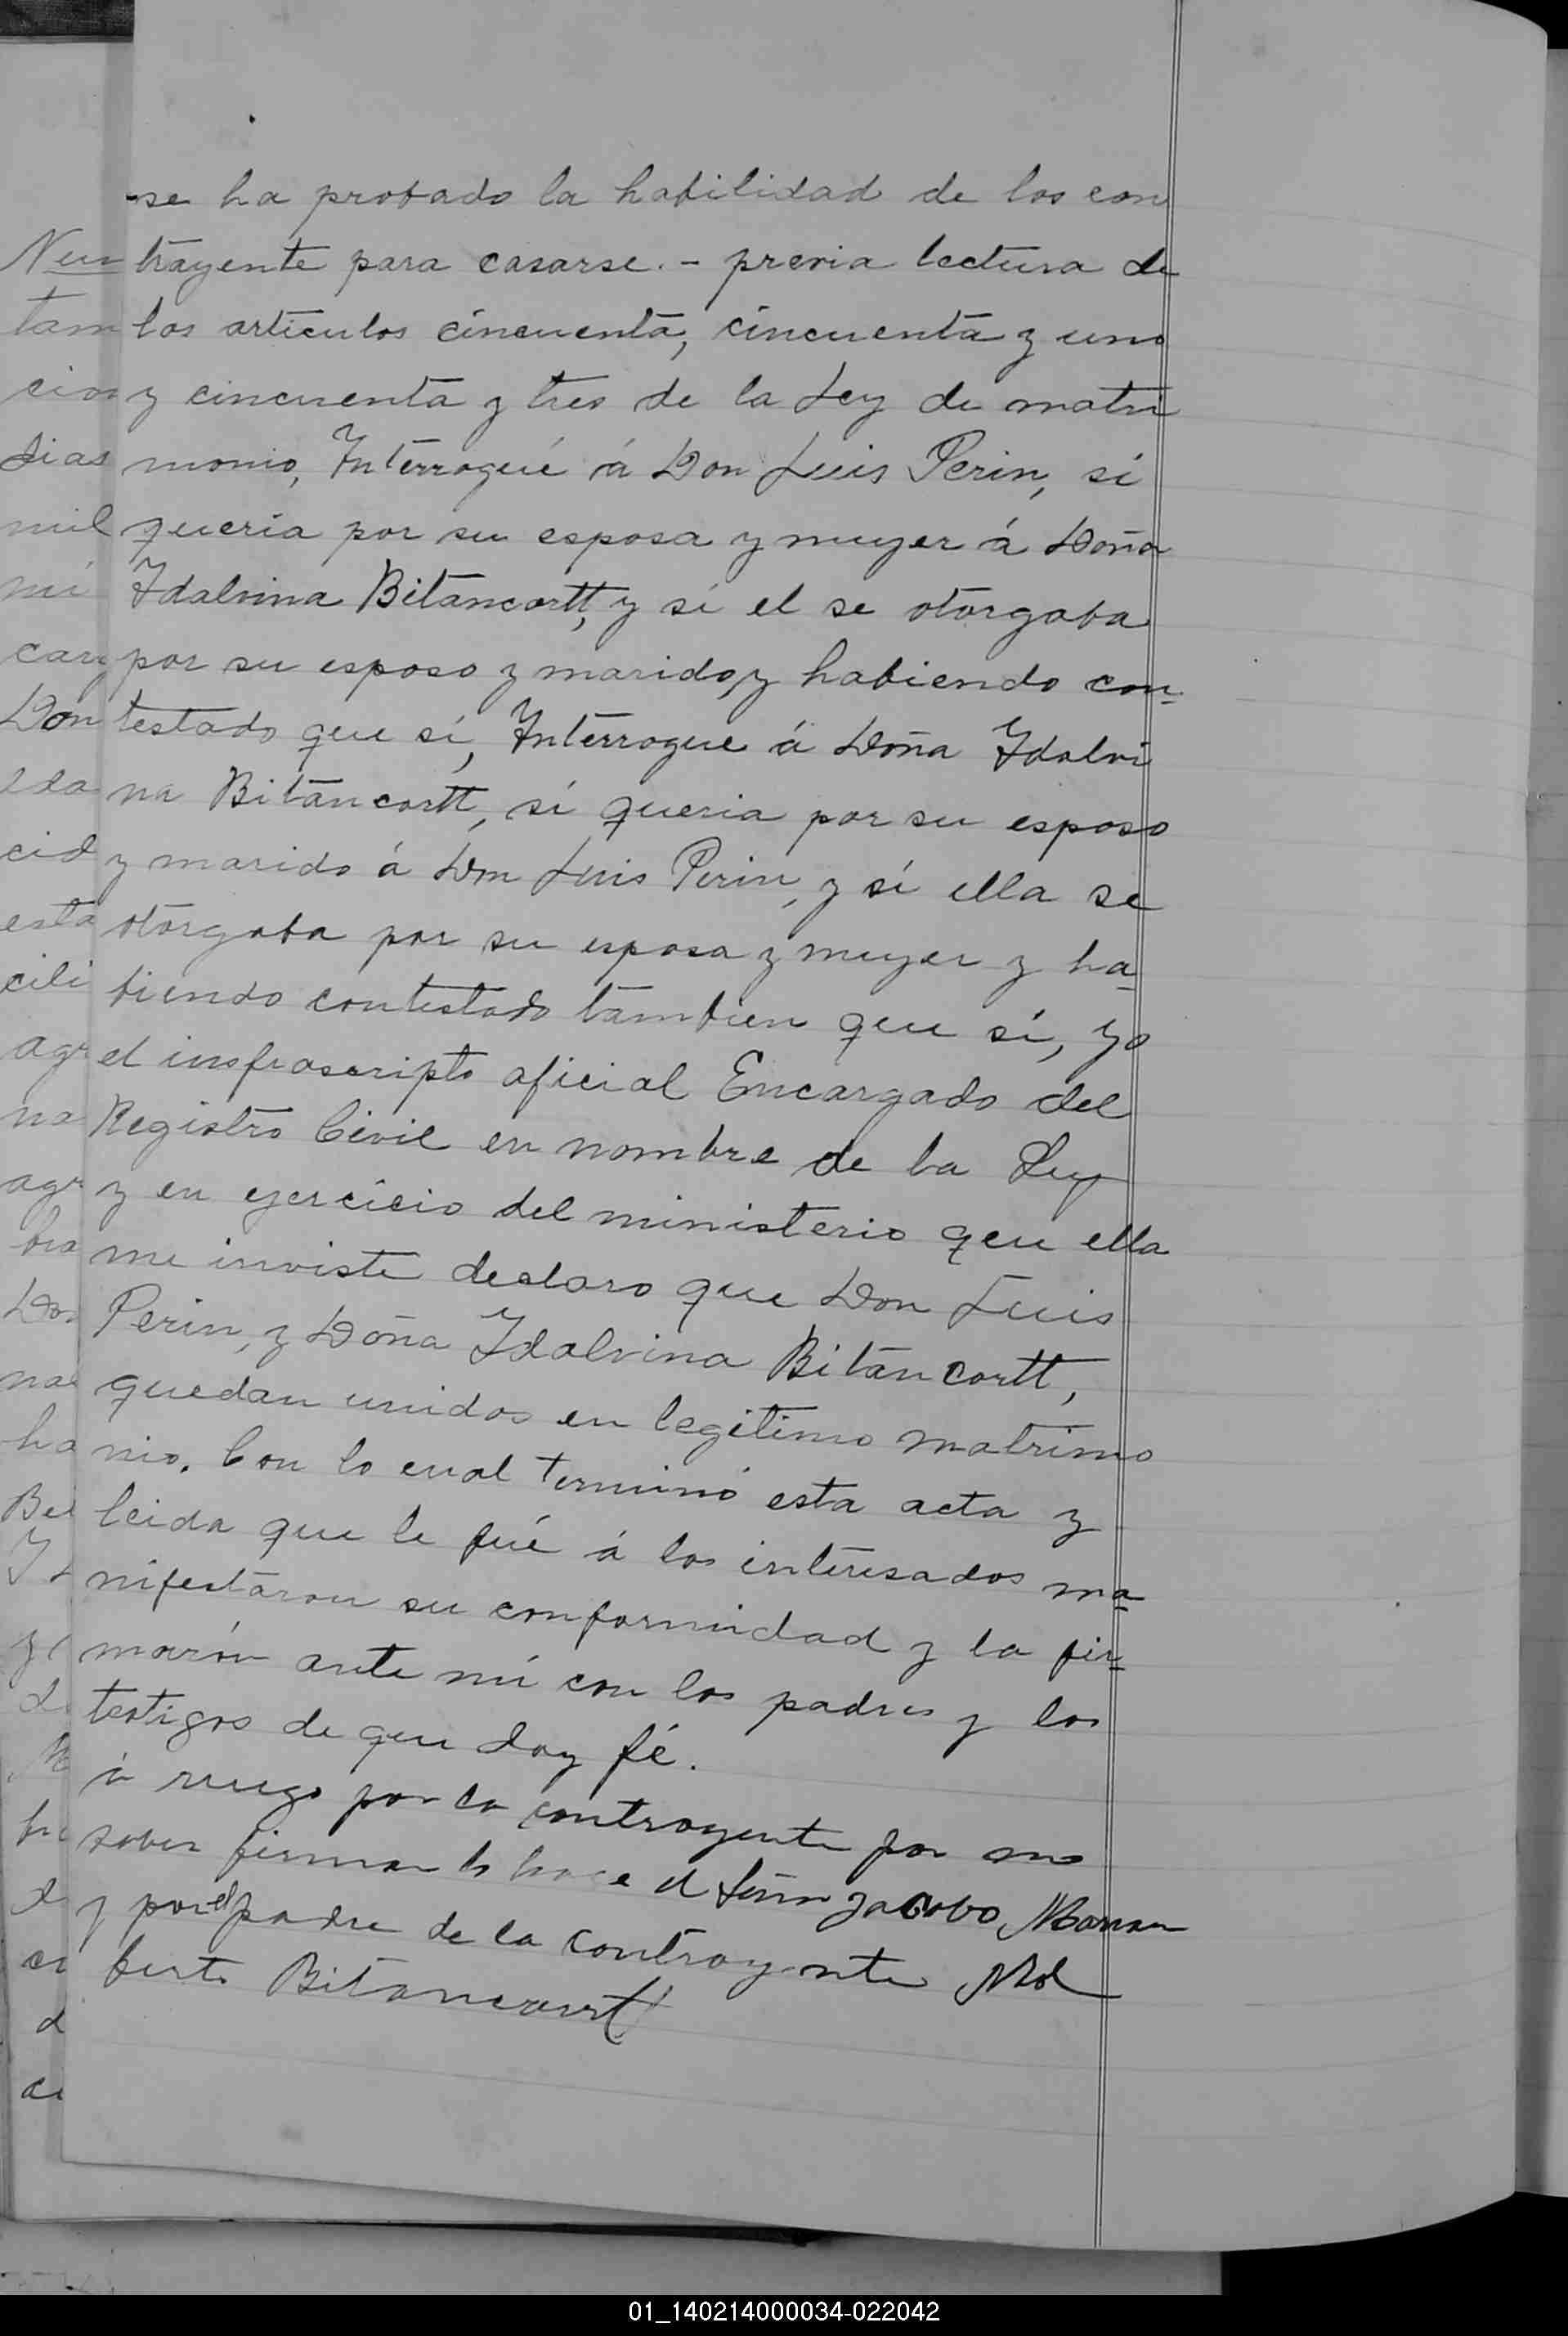 -se ha probado la habilidad de los con
trayente para casarse. - previa lectura de
los articulos cincuenta, cincuenta y uno
y cincuenta y tres de la Ley de matri
monio, Interrogué á Don Luis Perin, si
queria por su esposa y muyer á Doña
Idalvina Bitancortt, y si el se otorgaba
por su esposo y marido, y habiendo con-
testado que sí, Interrogue á Doña Idalvi
na Bitancortt, si queria por su esposo
y marido á Don Luis Perin, y si ella se
otorgaba por su esposa y muyer y ha-
biendo contestado tambien que sí, yo
el insfrascripto oficial Encargado del
Registro Civil en nombre de la Ley
y en ejercicio del ministerio que ella
me inviste declaro que Don Luis
Perin, y Doña Idalvina Bitancortt,
quedan unidos en legitimo matrimo
nio. Con lo cual terminó esta acta y
leida que le fué á los interesados ma-
nifestaron su conformidad y la fir-
marón ante mí con los padres y los
testigos de que doy fé.
á ruego por la contrayente por no
saber firmar lo hace el Señor Jacobo
y por el padre de la contrayente
berto Bitancourt
Num
tam
cion
dias
mil
mi
carg
Don
eda
cid
esta
cili
agr
na
agr
bra
Don
na
ha
Bei
01_140214000034-022042